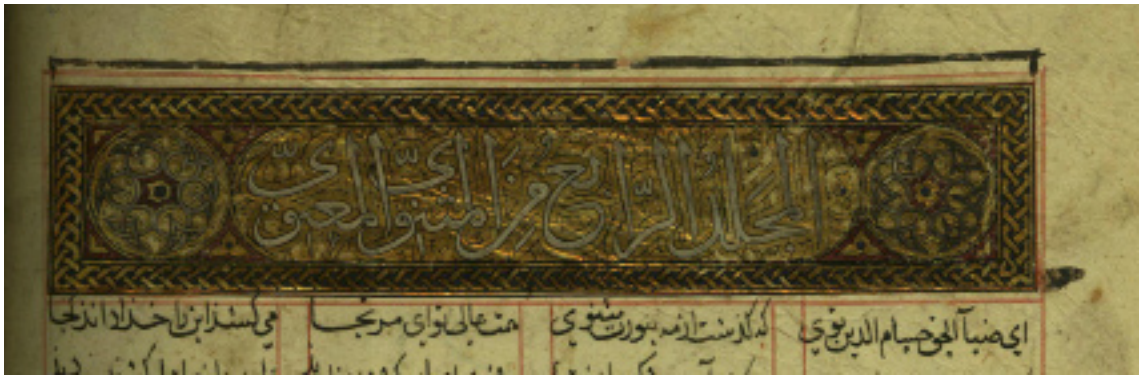 المجلد الرابع من المثنوي المعنوي
ای ضیآ الحق حسام الدین توی که گذشت از مه بنورت مثنوی
همت عالی تو ای مرتجا می کشد این را خدا داند کجا